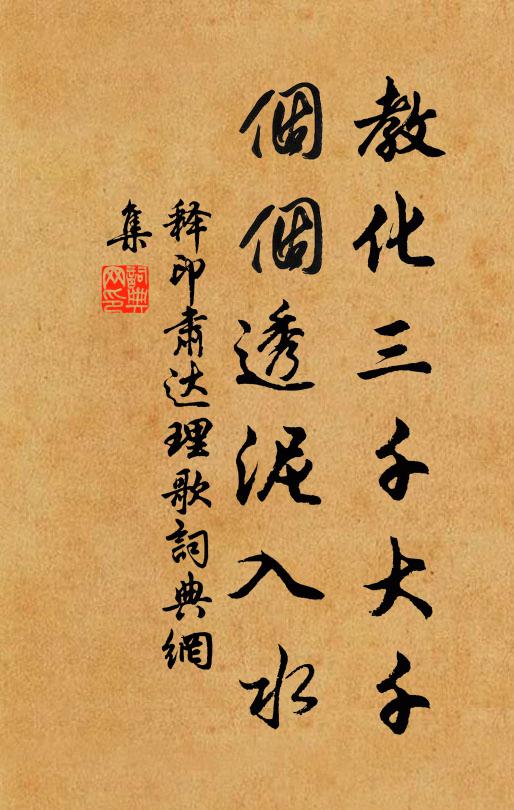 教化三千大千
個個透泥入水
释印肃达理歌詞典網
集
詞典
网印